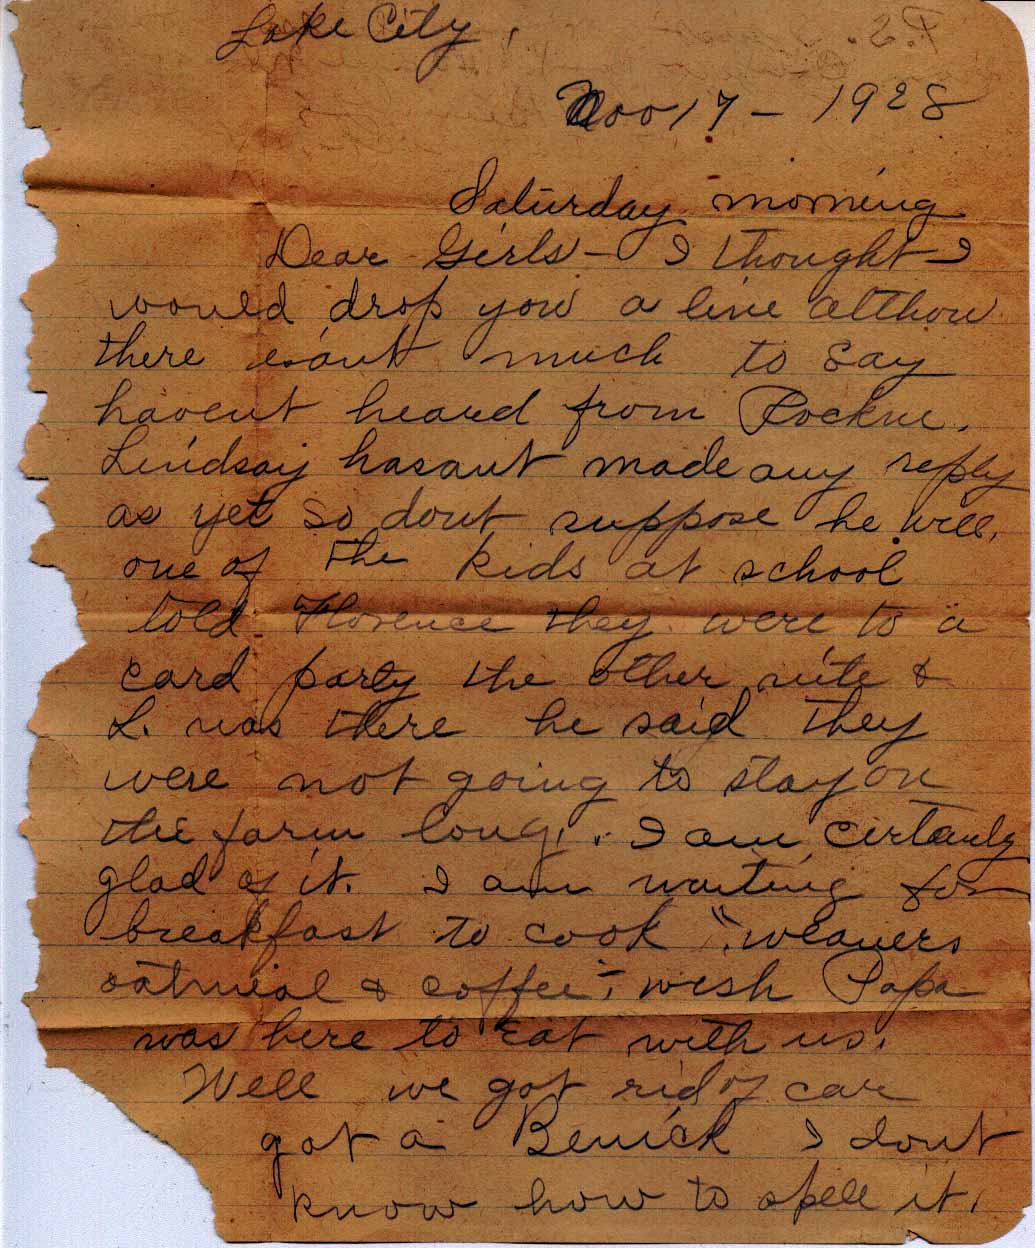 Lake City,
Nov 17 - 1928
Saturday morning
Dear Girls - I thought I
would drop you a line althou
there esant much to say
havent heard from Rockne.
Lindsay hasant made any reply
as yet so dont suppose he will.
one of the kids at school
told Florence they were to a
card party the other nite &
L. was there he said they
were not going to stay on
the farm long. I am certanly
glad of it. I am waiting for
breakfast to cook "weavers
oatmeal & coffee". wish Papa
was here to eat with us.
Well we got rid of car
got a Beuick I dont
know how to spell it.